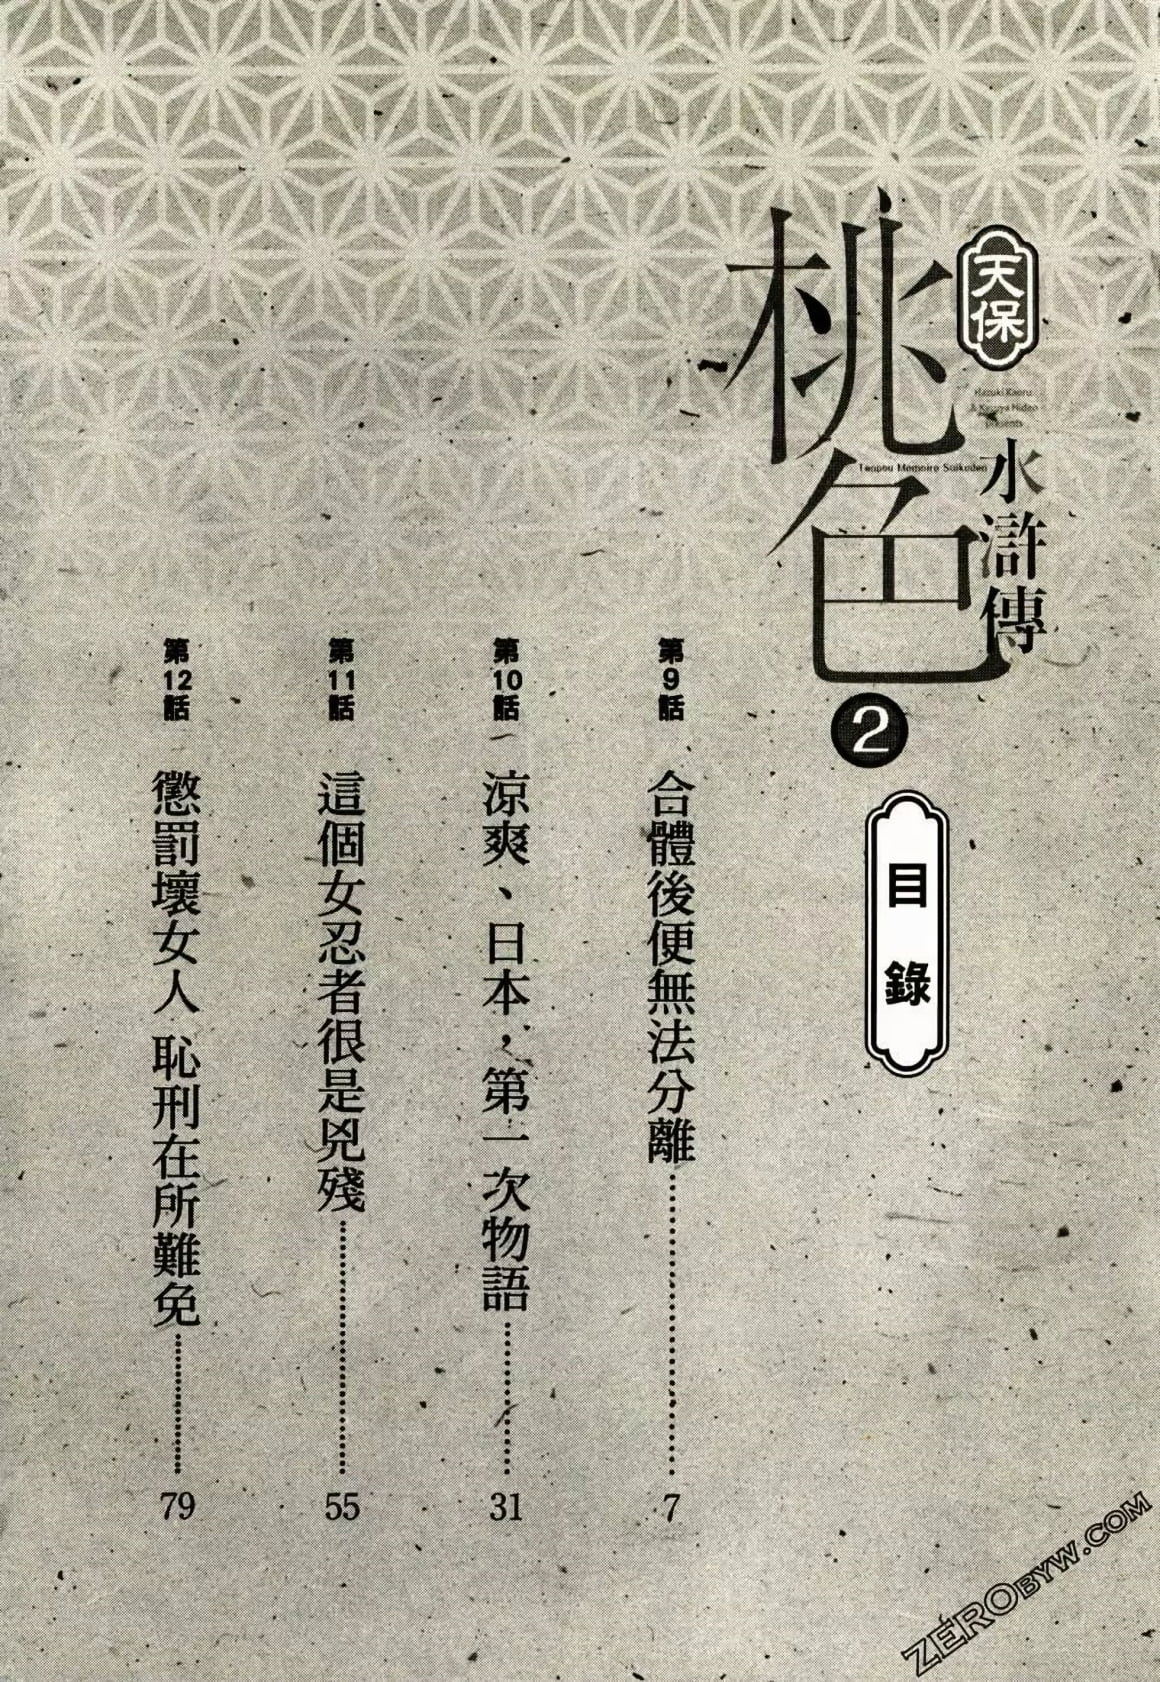 天保
Hazuki Kaoru
& Kiyoya Hideo
presents
水滸傳
桃色
Tenpou Momoiro Suikoden
2
目錄
第9話 合體後便無法分離 7
第10話 涼爽、日本，第一次物語 31
第11話 這個女忍者很是兇殘 55
第12話 懲罰壞女人 恥刑在所難免 79
ZEROBYW.COM